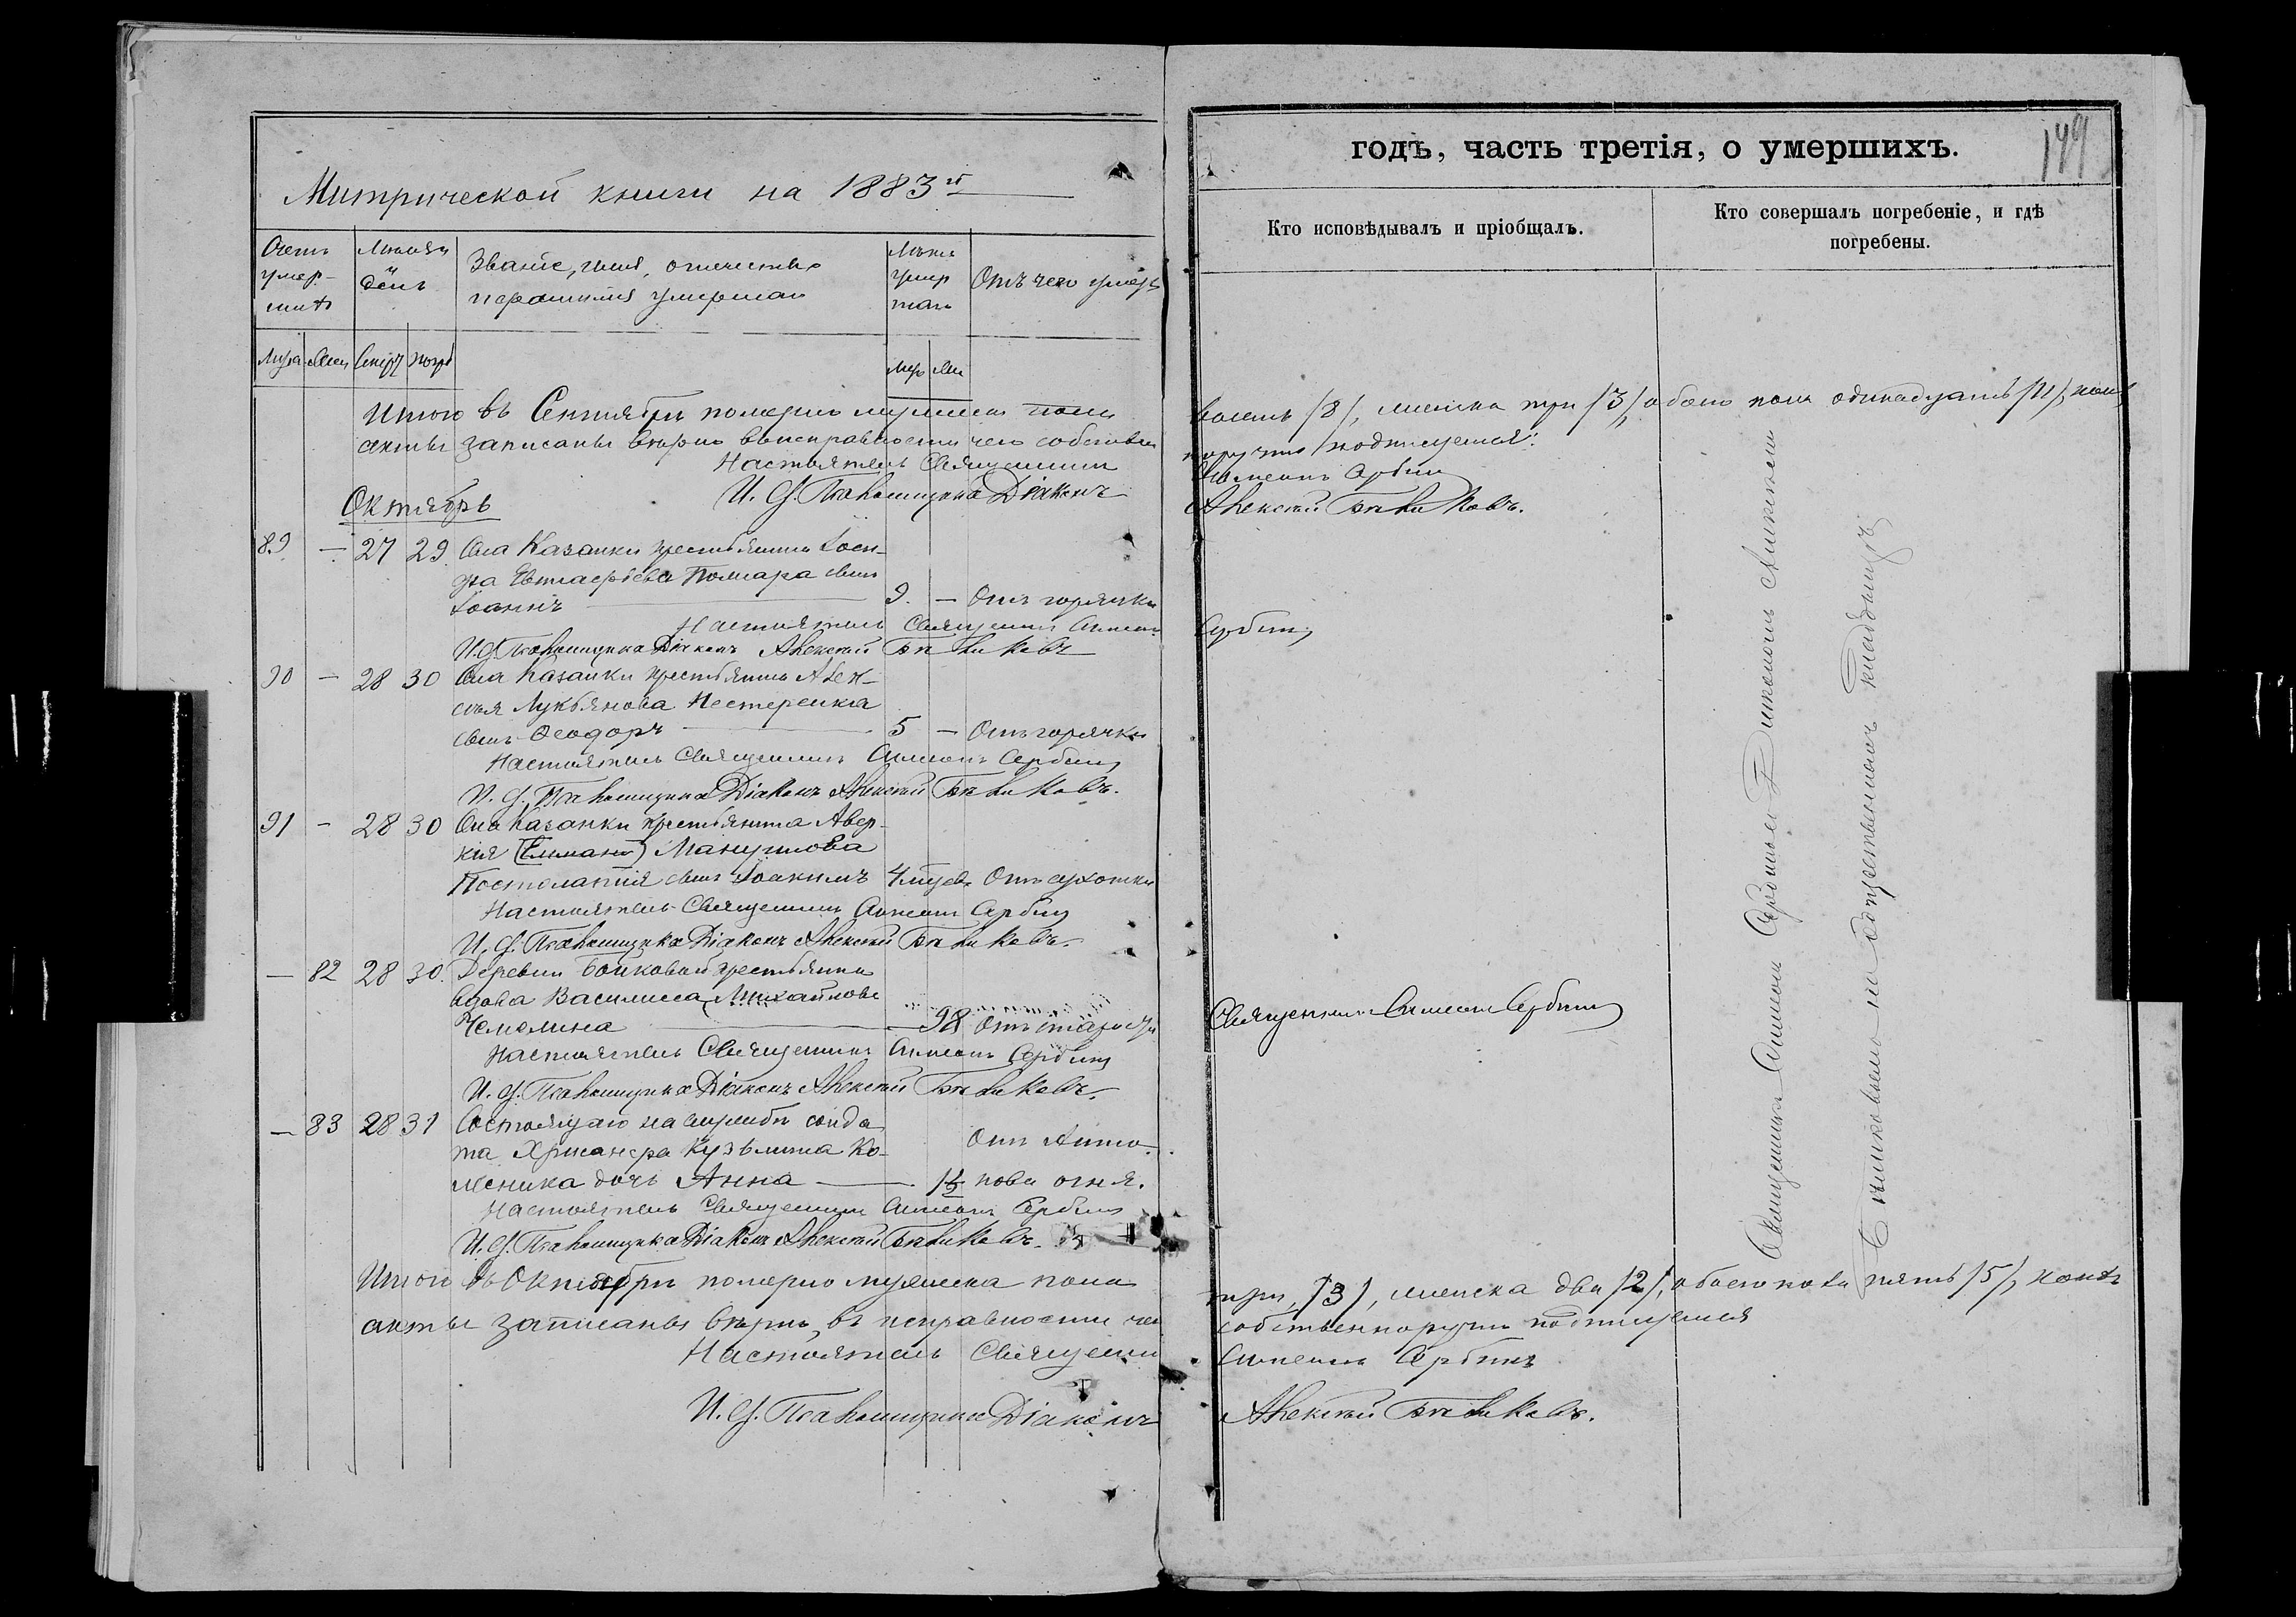 Митрической книги на 1883 й
годѣ, часть третія, о умершихъ.
149
Счетъ умер-шихъ
Мѣсяцъ и день
Званіе, имя, отчество и фамилія умершаго
Лѣта умершаго
Отъ чего умеръ
Кто исповѣдывалъ и пріобщалъ.
Кто совершалъ погребеніе, и гдѣ погребены.
Итого въ Сентябрѣ померло мужеска пола восемь /8/, женска три /3/, обоего пола одинадцать /11/, коихъ
акты записаны вѣрно въ исправности чего собственноручно подписуемся:
Настоятель Священникъ Симеонъ Сербинъ
И. д. Псаломщика Діаконъ Алексѣй
Октябрь
89 — 27 29 Села Казанки крестьянина Іоси-
фа Евстафіева сынъ
Іоаннъ — 9. — Отъ горячки
Настоятель Священникъ Симеонъ Сербинъ
И. д. Псаломщика Діаконъ Алексѣй
90 — 28 30 Села Казанки крестьянина Алек-
сѣя Лукьянова Нестеренка
сынъ Ѳеодоръ — 5 — Отъ горячки
Настоятель Священникъ Симеонъ Сербинъ
И. д. Псаломщика Діаконъ Алексѣй
91 — 28 30 Села Казанки крестьянина Авер-
кія Мануилова
сынъ Іоакимъ 4 Отъ сухотки
Настоятель Священникъ Симеонъ Сербинъ
И. д. Псаломщика Діаконъ Алексѣй
— 82 28 30 Деревни Бойковой крестьянка
вдова Василисса Михайлова
— 98 Отъ старости
Священникъ Симеонъ Сербинъ
Настоятель Священникъ Симеонъ Сербинъ
И. д. Псаломщика Діаконъ Алексѣй
— 83 28 31 Состоящаго на службѣ солда
та Хрисанфа Кузьмина Ко-
дочь Анна — 1½ Отъ Анто-
нова огня.
Настоятель Священникъ Симеонъ Сербинъ
И. д. Псаломщика Діаконъ Алексѣй
Священникъ Симеонъ Сербинъ съ Діакономъ Алексѣемъ
на общественномъ кладбищѣ
Итого въ Октябрѣ померло мужеска пола три /3/, женска два /2/, обоего пола пять /5/, коихъ
акты записаны вѣрно, въ исправности чего собственноручно подписуемся
Настоятель Священникъ Симеонъ Сербинъ
И. д. Псаломщика Діаконъ Алексѣй